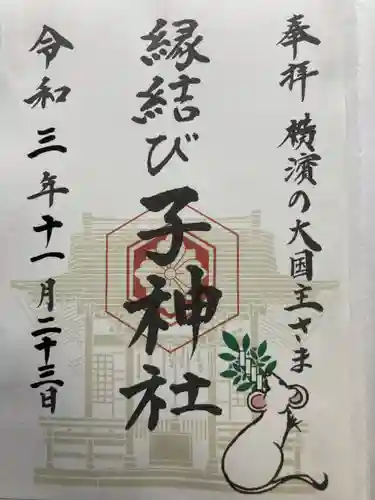 奉拝 横濱の大国主さま
縁結び子神社
令和三年十一月二十三日